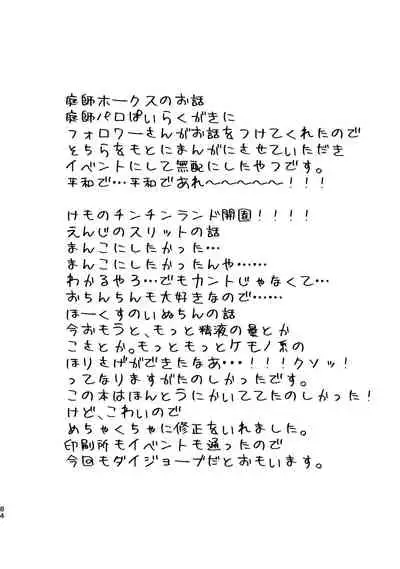 庭師ホークスのお話
庭師パロぱいらくがきに
フォロワーさんがお話をつけてくれたので
そちらをもとにまんがにさせていただき
イベントにして無配にしたやつです。
平和で…平和であれ〜〜〜〜〜！！！
けものチンチンランド開園！！！！
えんじのスリットの話
まんこにしたかった…
まんこにしたかったんや……
わかるやろ…でもカントじゃなくて…
おちんちんも大好きなので……
ほーくすのいぬちんの話
今おもうと、もっと精液の量とか
こさとか。もっともっとケモノ系の
ほりさげができたなあ…！！！クソッ！
ってなりますがたのしかったです。
この本はほんとうにかいててたのしかった！
けど、こわいので
めちゃくちゃに修正をいれました。
印刷所もイベントも通ったので
今回もダイジョーブだとおもいます。
84